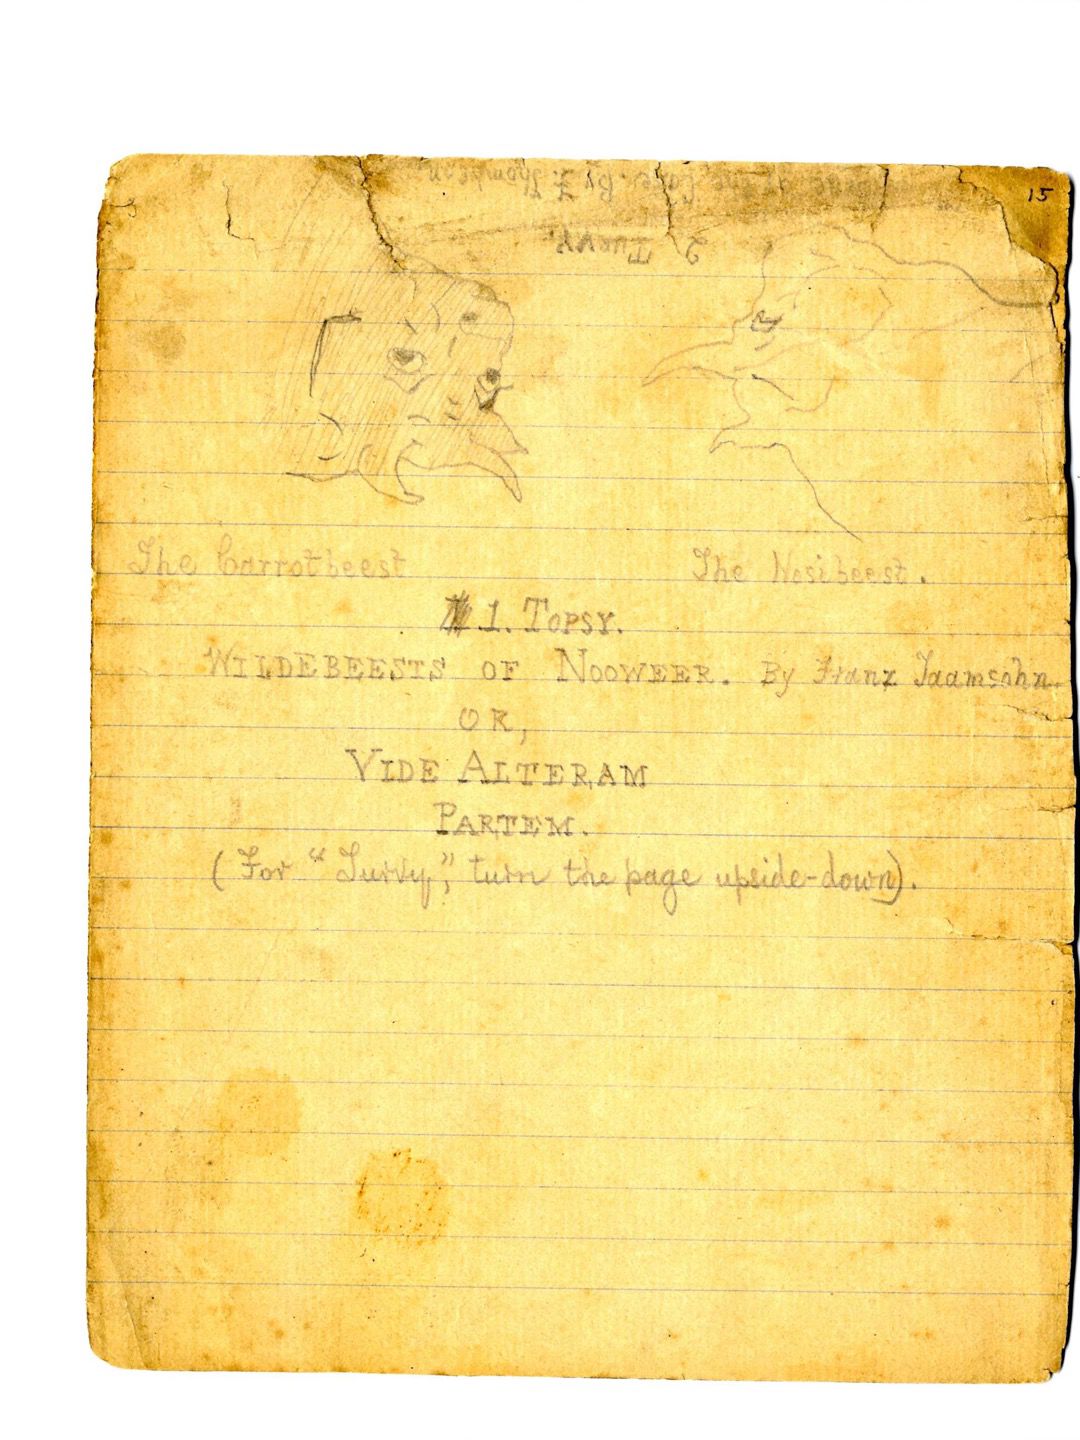 15
2 Turvy.
of the By F. Thompson
The Carrotbeest
The Nosibeest.
1. TOPSY.
WILDEBEESTS OF NOOWEER. By Franz Taamsohn.
OR,
VIDE ALTERAM
PARTEM.
(For "Turvy", turn the page upside-down).